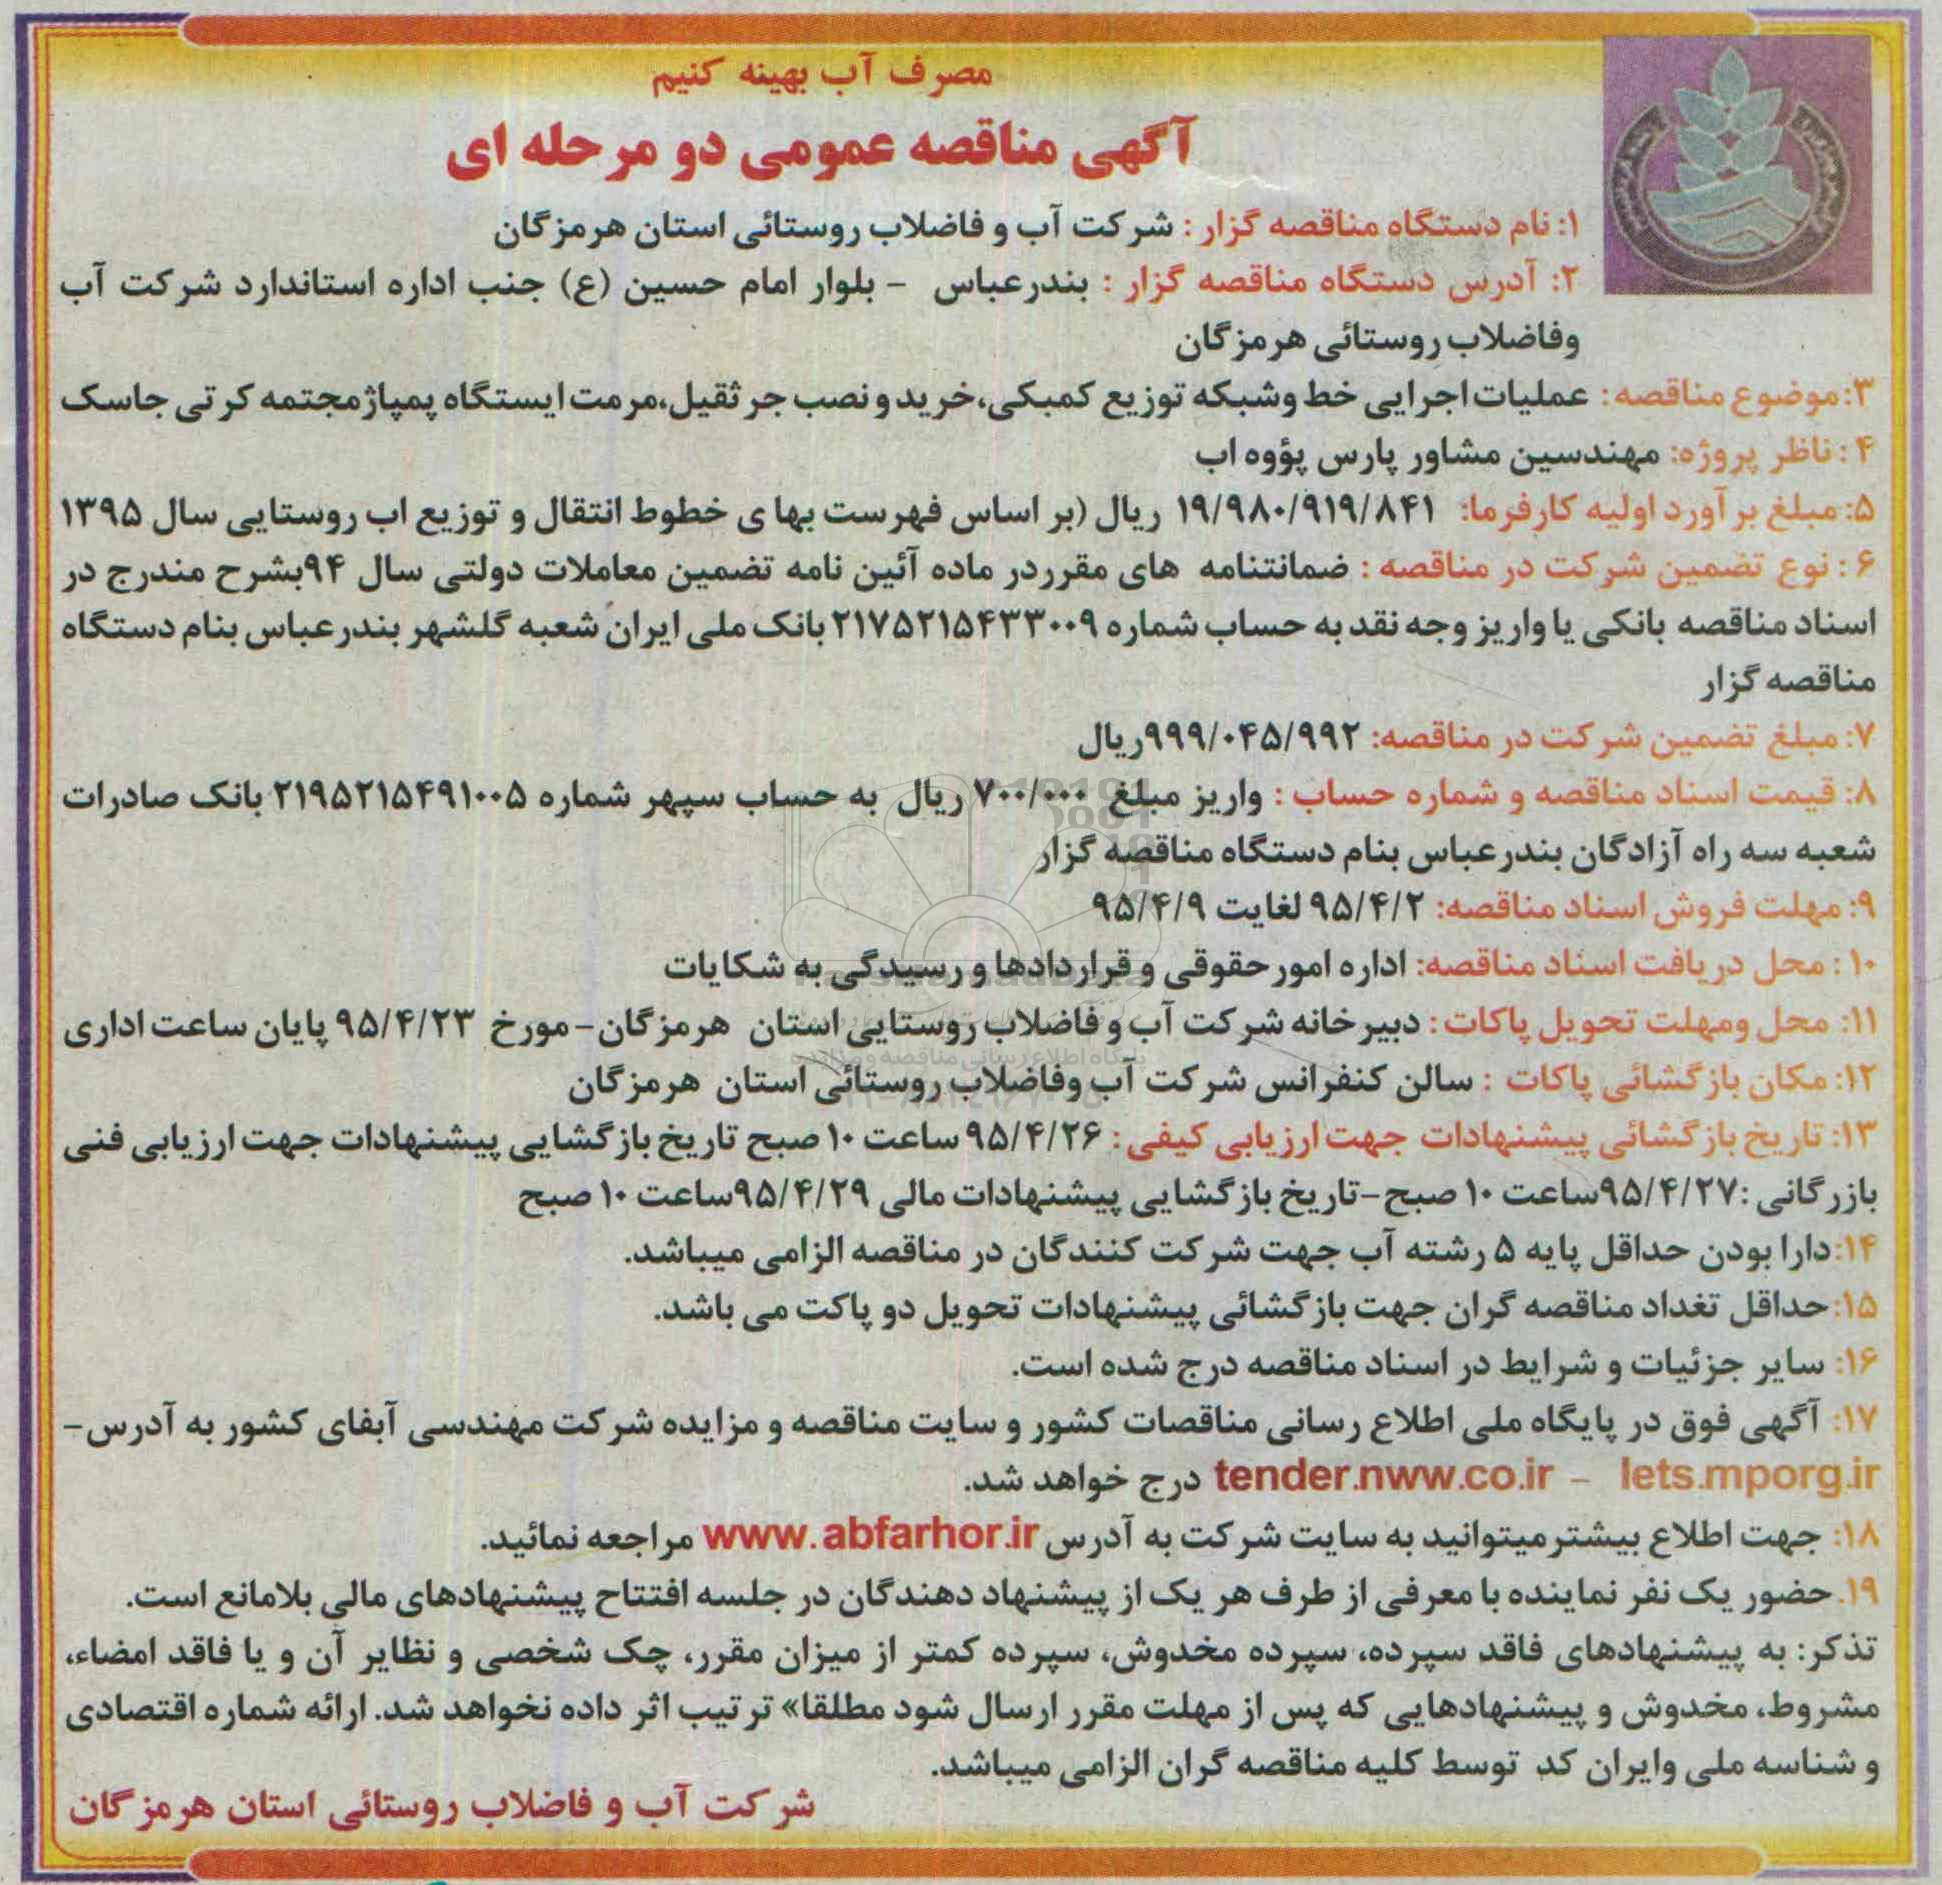 مصرف آب بهینه کنیم
آگهی مناقصه عمومی دو مرحله ای
۱: نام دستگاه مناقصه گزار : شرکت آب و فاضلاب روستائی استان هرمزگان
۲: آدرس دستگاه مناقصه گزار : بندرعباس - بلوار امام حسین (ع) جنب اداره استاندارد شرکت آب
وفاضلاب روستائی هرمزگان
۳:موضوع مناقصه: عملیات اجرایی خط وشبکه توزیع کمبکی،خرید و نصب جرثقیل،مرمت ایستگاه پمپاژمجتمه کرتی جاسک
۴ : ناظر پروژه: مهندسین مشاور پارس پؤوه اب
۵: مبلغ برآورد اولیه کارفرما: ۱۹/۹۸۰/۹۱۹/۸۴۱ ریال (بر اساس فهرست بها ی خطوط انتقال و توزیع اب روستایی سال ۱۳۹۵
۶ : نوع تضمین شرکت در مناقصه : ضمانتنامه های مقرردر ماده آئین نامه تضمین معاملات دولتی سال ۹۴بشرح مندرج در
اسناد مناقصه بانکی یا واریز وجه نقد به حساب شماره ۲۱۷۵۲۱۵۴۳۳۰۰۹ بانک ملی ایران شعبه گلشهر بندرعباس بنام دستگاه
مناقصه گزار
۷: مبلغ تضمین شرکت در مناقصه: ۹۹۹/۰۴۵/۹۹۲ریال
۸: قیمت اسناد مناقصه و شماره حساب : واریز مبلغ ۷۰۰/۰۰۰ ریال به حساب سپهر شماره ۲۱۹۵۲۱۵۴۹۱۰۰۵ بانک صادرات
شعبه سه راه آزادگان بندرعباس بنام دستگاه مناقصه گزار
۹: مهلت فروش اسناد مناقصه: ۹۵/۴/۲ لغایت ۹۵/۴/۹
۱۰ : محل دریافت اسناد مناقصه: اداره امور حقوقی و قراردادها و رسیدگی به شکایات
۱۱: محل ومهلت تحویل پاکات : دبیرخانه شرکت آب و فاضلاب روستایی استان هرمزگان-مورخ ۹۵/۴/۲۳ پایان ساعت اداری
پایگاه اطلاع رسانی مناقصه و مزایده
۱۲: مکان بازگشائی پاکات : سالن کنفرانس شرکت آب وفاضلاب روستائی استان هرمزگان
۱۳: تاریخ بازگشائی پیشنهادات جهت ارزیابی کیفی : ۹۵/۴/۲۶ ساعت ۱۰ صبح تاریخ بازگشایی پیشنهادات جهت ارزیابی فنی
بازرگانی :۹۵/۴/۲۷ساعت ۱۰ صبح-تاریخ بازگشایی پیشنهادات مالی ۹۵/۴/۲۹ساعت ۱۰ صبح
۱۴:دارا بودن حداقل پایه ۵ رشته آب جهت شرکت کنندگان در مناقصه الزامی میباشد.
۱۵: حداقل تغداد مناقصه گران جهت بازگشائی پیشنهادات تحویل دو پاکت می باشد.
۱۶: سایر جزئیات و شرایط در اسناد مناقصه درج شده است.
۱۷: آگهی فوق در پایگاه ملی اطلاع رسانی مناقصات کشور و سایت مناقصه و مزایده شرکت مهندسی آبفای کشور به آدرس-
tender.nww.co.ir - iets.mporg.ir درج خواهد شد.
۱۸: جهت اطلاع بیشترمیتوانید به سایت شرکت به آدرس www.abfarhor.ir مراجعه نمائید.
۱۹. حضور یک نفر نماینده با معرفی از طرف هر یک از پیشنهاد دهندگان در جلسه افتتاح پیشنهادهای مالی بلامانع است.
تذکر: به پیشنهادهای فاقد سپرده، سپرده مخدوش، سپرده کمتر از میزان مقرر، چک شخصی و نظایر آن و یا فاقد امضاء،
مشروط، مخدوش و پیشنهادهایی که پس از مهلت مقرر ارسال شود مطلقا» ترتیب اثر داده نخواهد شد. ارائه شماره اقتصادی
و شناسه ملی وایران کد توسط کلیه مناقصه گران الزامی میباشد.
شرکت آب و فاضلاب روستائی استان هرمزگان